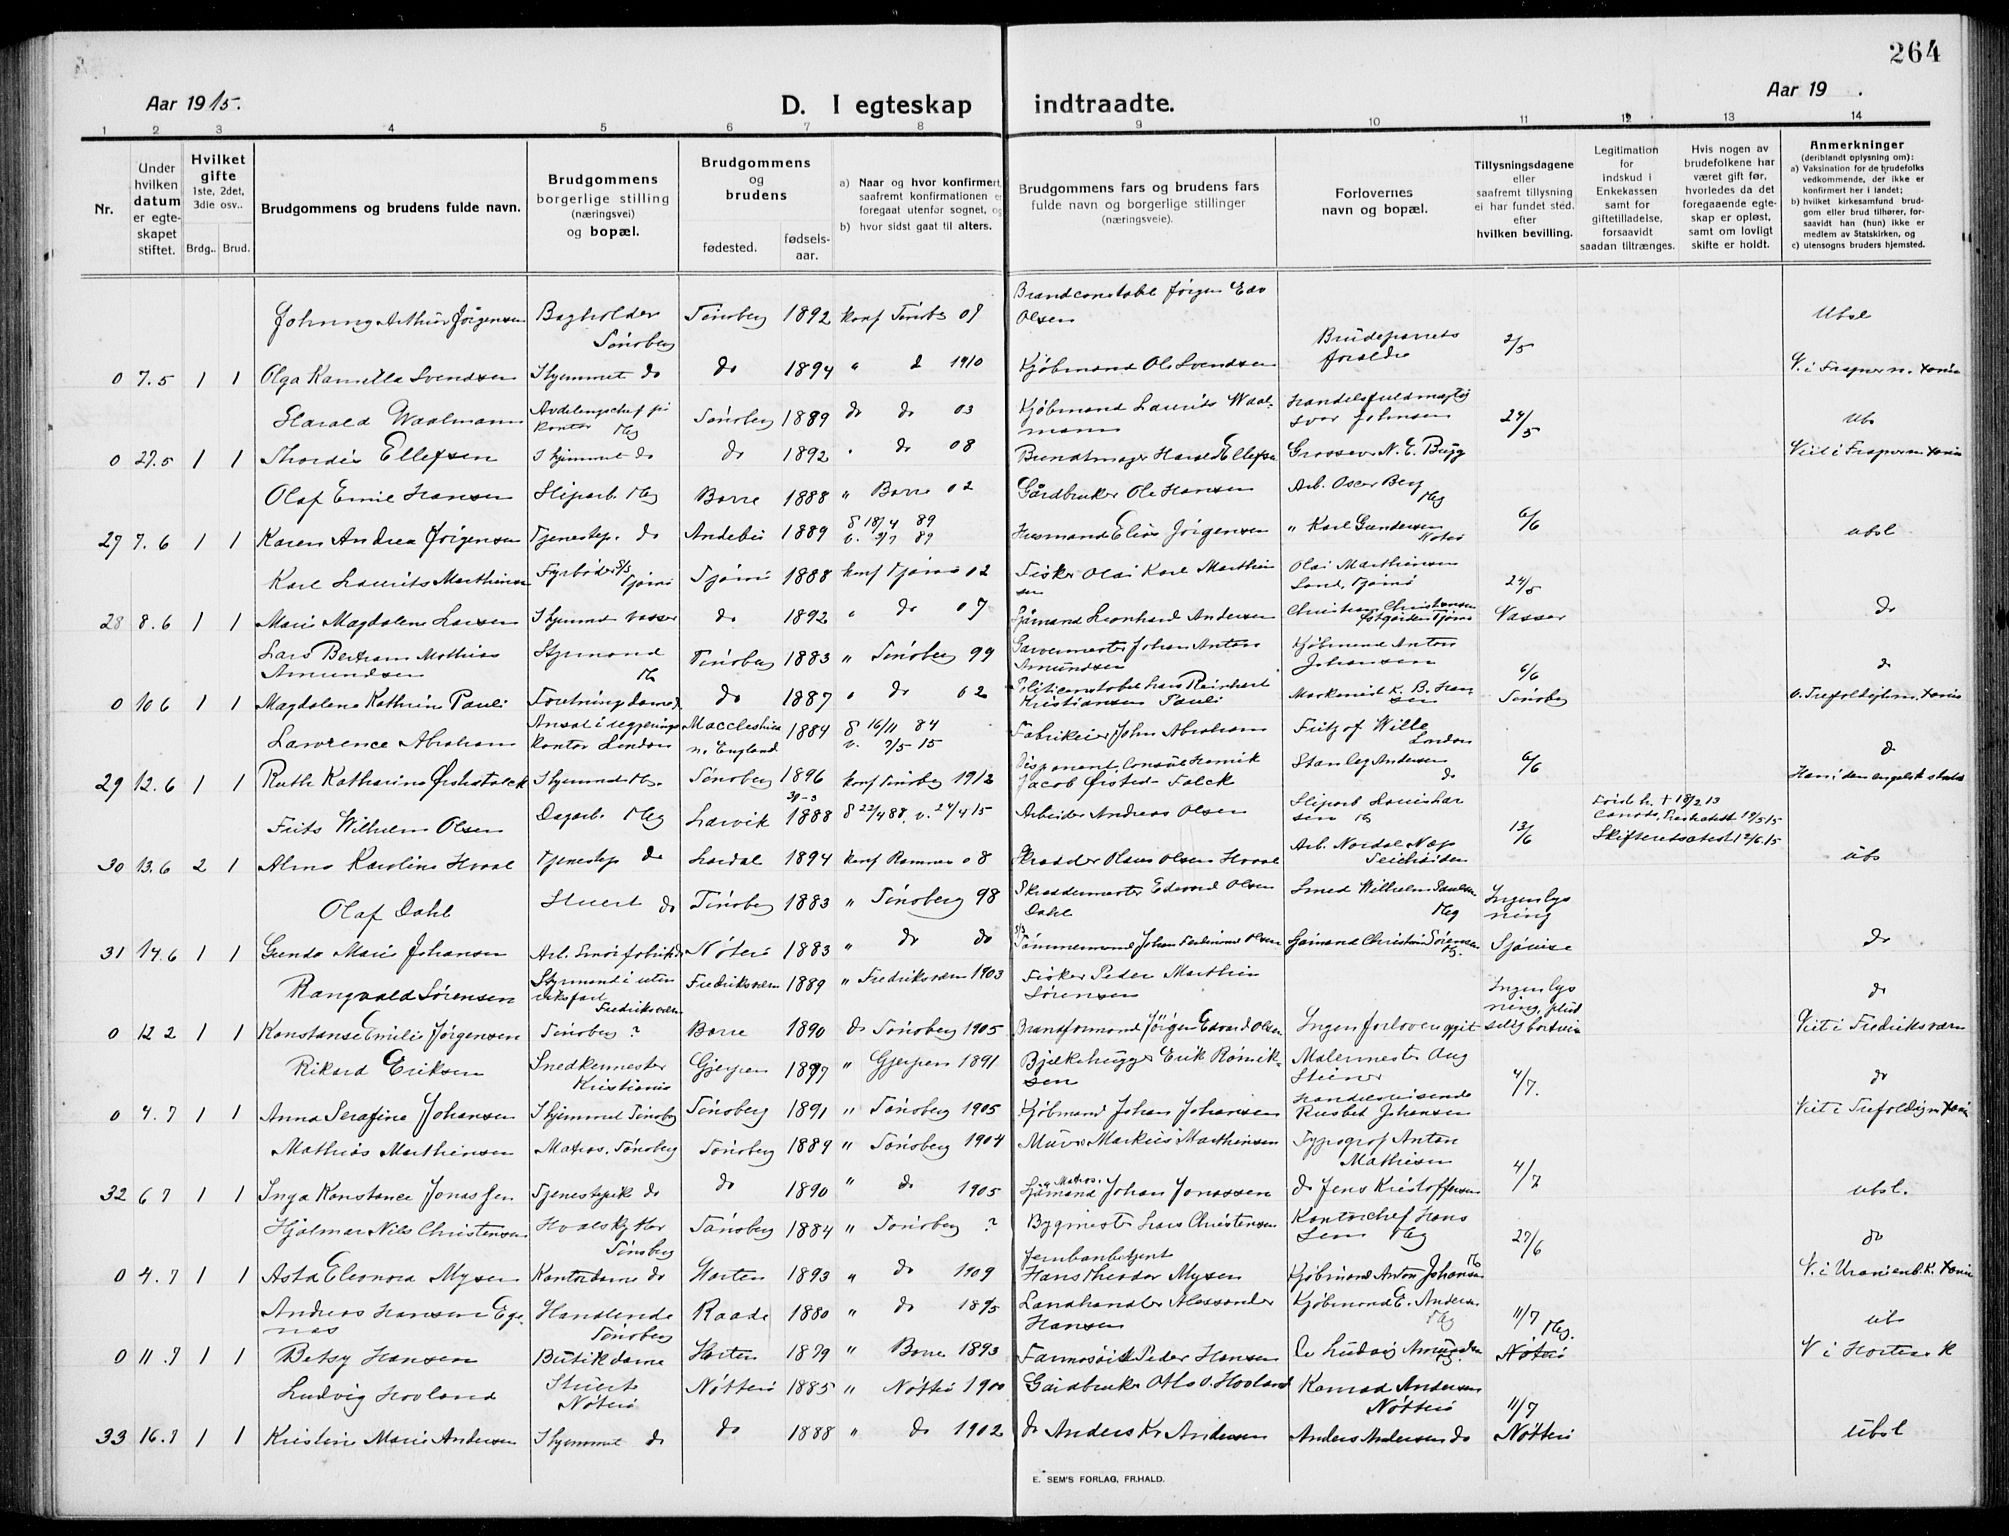 264
Aar 1915.
D. I egteskap indtraadte.
Aar 19 .
1 2 3 4 5 6 7 8 9 10 11 12 13 14
Nr.
Under hvilken datum er egteskapet stiftet.
Hvilket gifte 1ste, 2det, 3die osv..
Brdg.. Brud.
Brudgommens og brudens fulde navn.
Brudgommens borgerlige stilling (næringsvei) og bopæl.
Brudgommens og brudens
fødested. fødselsaar.
a) Naar og hvor konfirmert, saafremt konfirmationen er foregaat utenfor sognet, og
b) hvor sidst gaat til alters.
Brudgommens fars og brudens fars fulde navn og borgerlige stillinger (næringsveie).
Forlovernes navn og bopæl.
Tillysningsdagene eller saafremt tillysning ei har fundet sted, efter hvilken bevilling.
Legitimation for indskud i Enkekassen samt for giftetilladelse, forsaavidt saadan tiltrænges.
Hvis nogen av brudefolkene har været gift før, hvorledes da det foregaaende egteskap er opløst, samt om lovligt skifte er holdt.
Anmerkninger (deriblandt oplysning om):
a) Vaksination for de brudefolks vedkommende, der ikke er konfirmert her i landet;
b) hvilket kirkesamfund brudgom eller brud tilhører, forsaavidt han (hun) ikke er medlem av Statskirken, og
c) utensogns bruders hjemsted.
Johnny Arthur Jørgensen Bagholder Tønsberg Tønsberg 1892 konf Tønsb 09 Brandconstabel Jørgen Edv Olsen Brudeparrets forældre 2/5 Ubsl
0 7.5 1 1 Olga Kamilla Svendsen I hjemmet do do 1894 " d 1910 Kjøbmand Ole Svendsen
Harald Waalmann Avdelingschef på kontor Tønsberg 1889 do do 03 Kjøbmand Laurits Waalmann Ivar Johnsen 24/5 Ub
0 27.5 1 1 Thordis Ellefsen I hjemmet do do 1892 " do 08 Buntmager Harald Ellefsen Grosserer N. E. Bugg
Olaf Emil Hansen Sliparb. Tbg Borre 1888 " Borre 02 Gårdbruker Ole Hansen Arb. Oscar Berg Tbg 6/6
27 7.6 1 1 Karen Andrea Jørgensen Tjenestep. do Andebu 1889 d 18/4 89 Husmand Elias Jørgensen " Karl Gundersen ubsl
Karl Laurits Marthinsen Fyrbøder Tjømø Tjømø 1888 konf Tjømø 02 Fisker Olai Karl Marthinsen Olai Marthinsen Sand, Tjømø 24/5
28 8.6 1 1 Marie Magdalene Larsen I hjemmet Vasser do 1892 " do 07 Sjømand Leonhard Andersen Christian Christensen Tjømø Vasser do
Lars Bertram Mathias Amundsen Styrmand Tbg Tønsberg 1883 " Tønsberg 99 Garvermester Johan Anton Amundsen Kjøbmand Anton Johansen 6/6 do
0 10 6 1 1 Magdalene Kathrin Pauli Foretningsdame do 1887 " do 02 Politiconstabel Lars Reinhart Kristiansen Pauli K. B. Hansen Tønsberg
Lawrence Abraham kontor London Macclesfield n. England 1884 d 16/11 84 v. 9/5 15 Fabrikeier John Abraham Fritz of Wille London 6/6 do
29 12.6 1 1 Ruth Katharina Ørsted-Falck I hjemmet Tbg. Tønsberg 1896 konf Tønsberg 1912 Disponent, Consul Henrik Jacob Ørsted-Falck Stanley Andersen do Han i den engelsk stats
Frits Wilhelm Olsen Dagarb. Tbg Larvik 30-3 1888 d 22/4 88, v. 24/4 15 Arbeider Andreas Olsen Sliparb Louis Larsen Tbg 13/6
30 13.6 2 1 Alma Karoline Hvaal Tjenestep do Lardal 1894 konf Ramnes 08 Skrædder Olaus Olsen Hvaal Arb. Nordal Næss Skifteretsattest 12/6.15 ubs
Olaf Dahl Stuert do Tønsberg 1883 " Tønsberg 98 Skreddermester Edvard Olsen Dahl Smed Wilhelm Paulsen Tbg Ingen lysning
31 14.6 1 1 Gunda Marie Johansen Arb. Smørfabrik do Nøterø 1883 " do do Tømmermand Johan Ferdinand Olsen Sjømand Christian Sørensen Tbg. Sjøreise do
Rangvald Sørensen Styrmand i utenriksfart Fredriksværn Fredriksværn 1889 " Fredriksværn 1903 Fisker Peder Marthin Sørensen Ingen lysning, do
0 12 2 1 1 Konstanse Emilie Jørgensen Tønsberg ? Borre 1890 do Tønsberg 1905 Brandformand Jørgen Edvard Olsen Ingen forlover opgit Viet i Fredriksværn
Rikard Eriksen Snedkermester Kristiania Gjerpen 1877 " Gjerpen 1891 Bjelkehugger Erik Malermester Aug Steiner 4/7. do
0 4.7 1 1 Anna Serafine Johansen I hjemmet Tønsberg Tønsberg 1891 " Tønsberg 1905 Kjøbmand Johan Johansen Handelsreisende Johansen
Mathias Marthinsen Matros. Tønsberg Tønsberg 1889 " Tønsberg 1904 Murer Markus Marthinsen Typograf Anton Mathisen 4/7
32 6 7 1 1 Inga Konstance Jonassen Tjenestepike do do 1890 " do 1905 Sjømand Johan Jonassen do Jens Kristoffersen ubsl.
Hjalmar Nils Christensen Hvalskytter Tønsberg Tønsberg 1884 " Tønsberg ? Bygmester Lars Christensen Kontorchef Hans Sem Tbg 27/6 do
0 4.7 1 1 Asta Eleonora Mysen Kontordame do Horten 1893 " do 1909 Jernbanbetjent Hans Theodor Mysen Kjøbmand Anton Johansen Tbg
Andreas Hansen Egenæs Handlende Tønsberg Raade 1880 " do 1895 Landhandler Alexander Hansen Kjøbmand E. Andersen Tbg 11/7 Tbg. ub
0 11.7 1 1 Betsy Hansen Butikdame Horten 1879 " Borre 1893 Peder Hansen do Ludvig Amundsen Nøtterø V i Horten K
Ludvig Hovland Stuert Nøterø Nøtterø 1885 " Nøtterø 1900 Gårdbruker Otto O. Hovland Konrad Andersen Nøtterø 11/7
33 16.7 1 1 Kristine Marie Andersen I hjemmet do do 1888 " do 1902 do Anders Kr Andersen Anders Andersen do Nøtterø Ubsl
E. SEM'S FORLAG, FR.HALD.